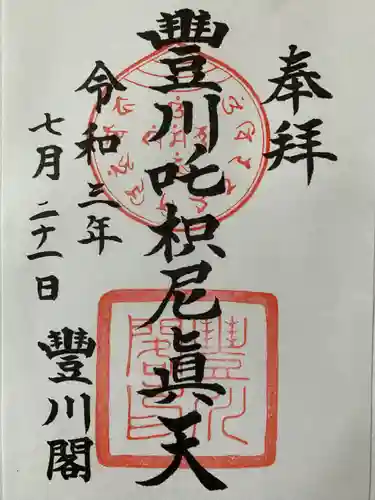 奉拝
豐川吒枳尼眞天
令和三年
七月二十一日
豐川閣